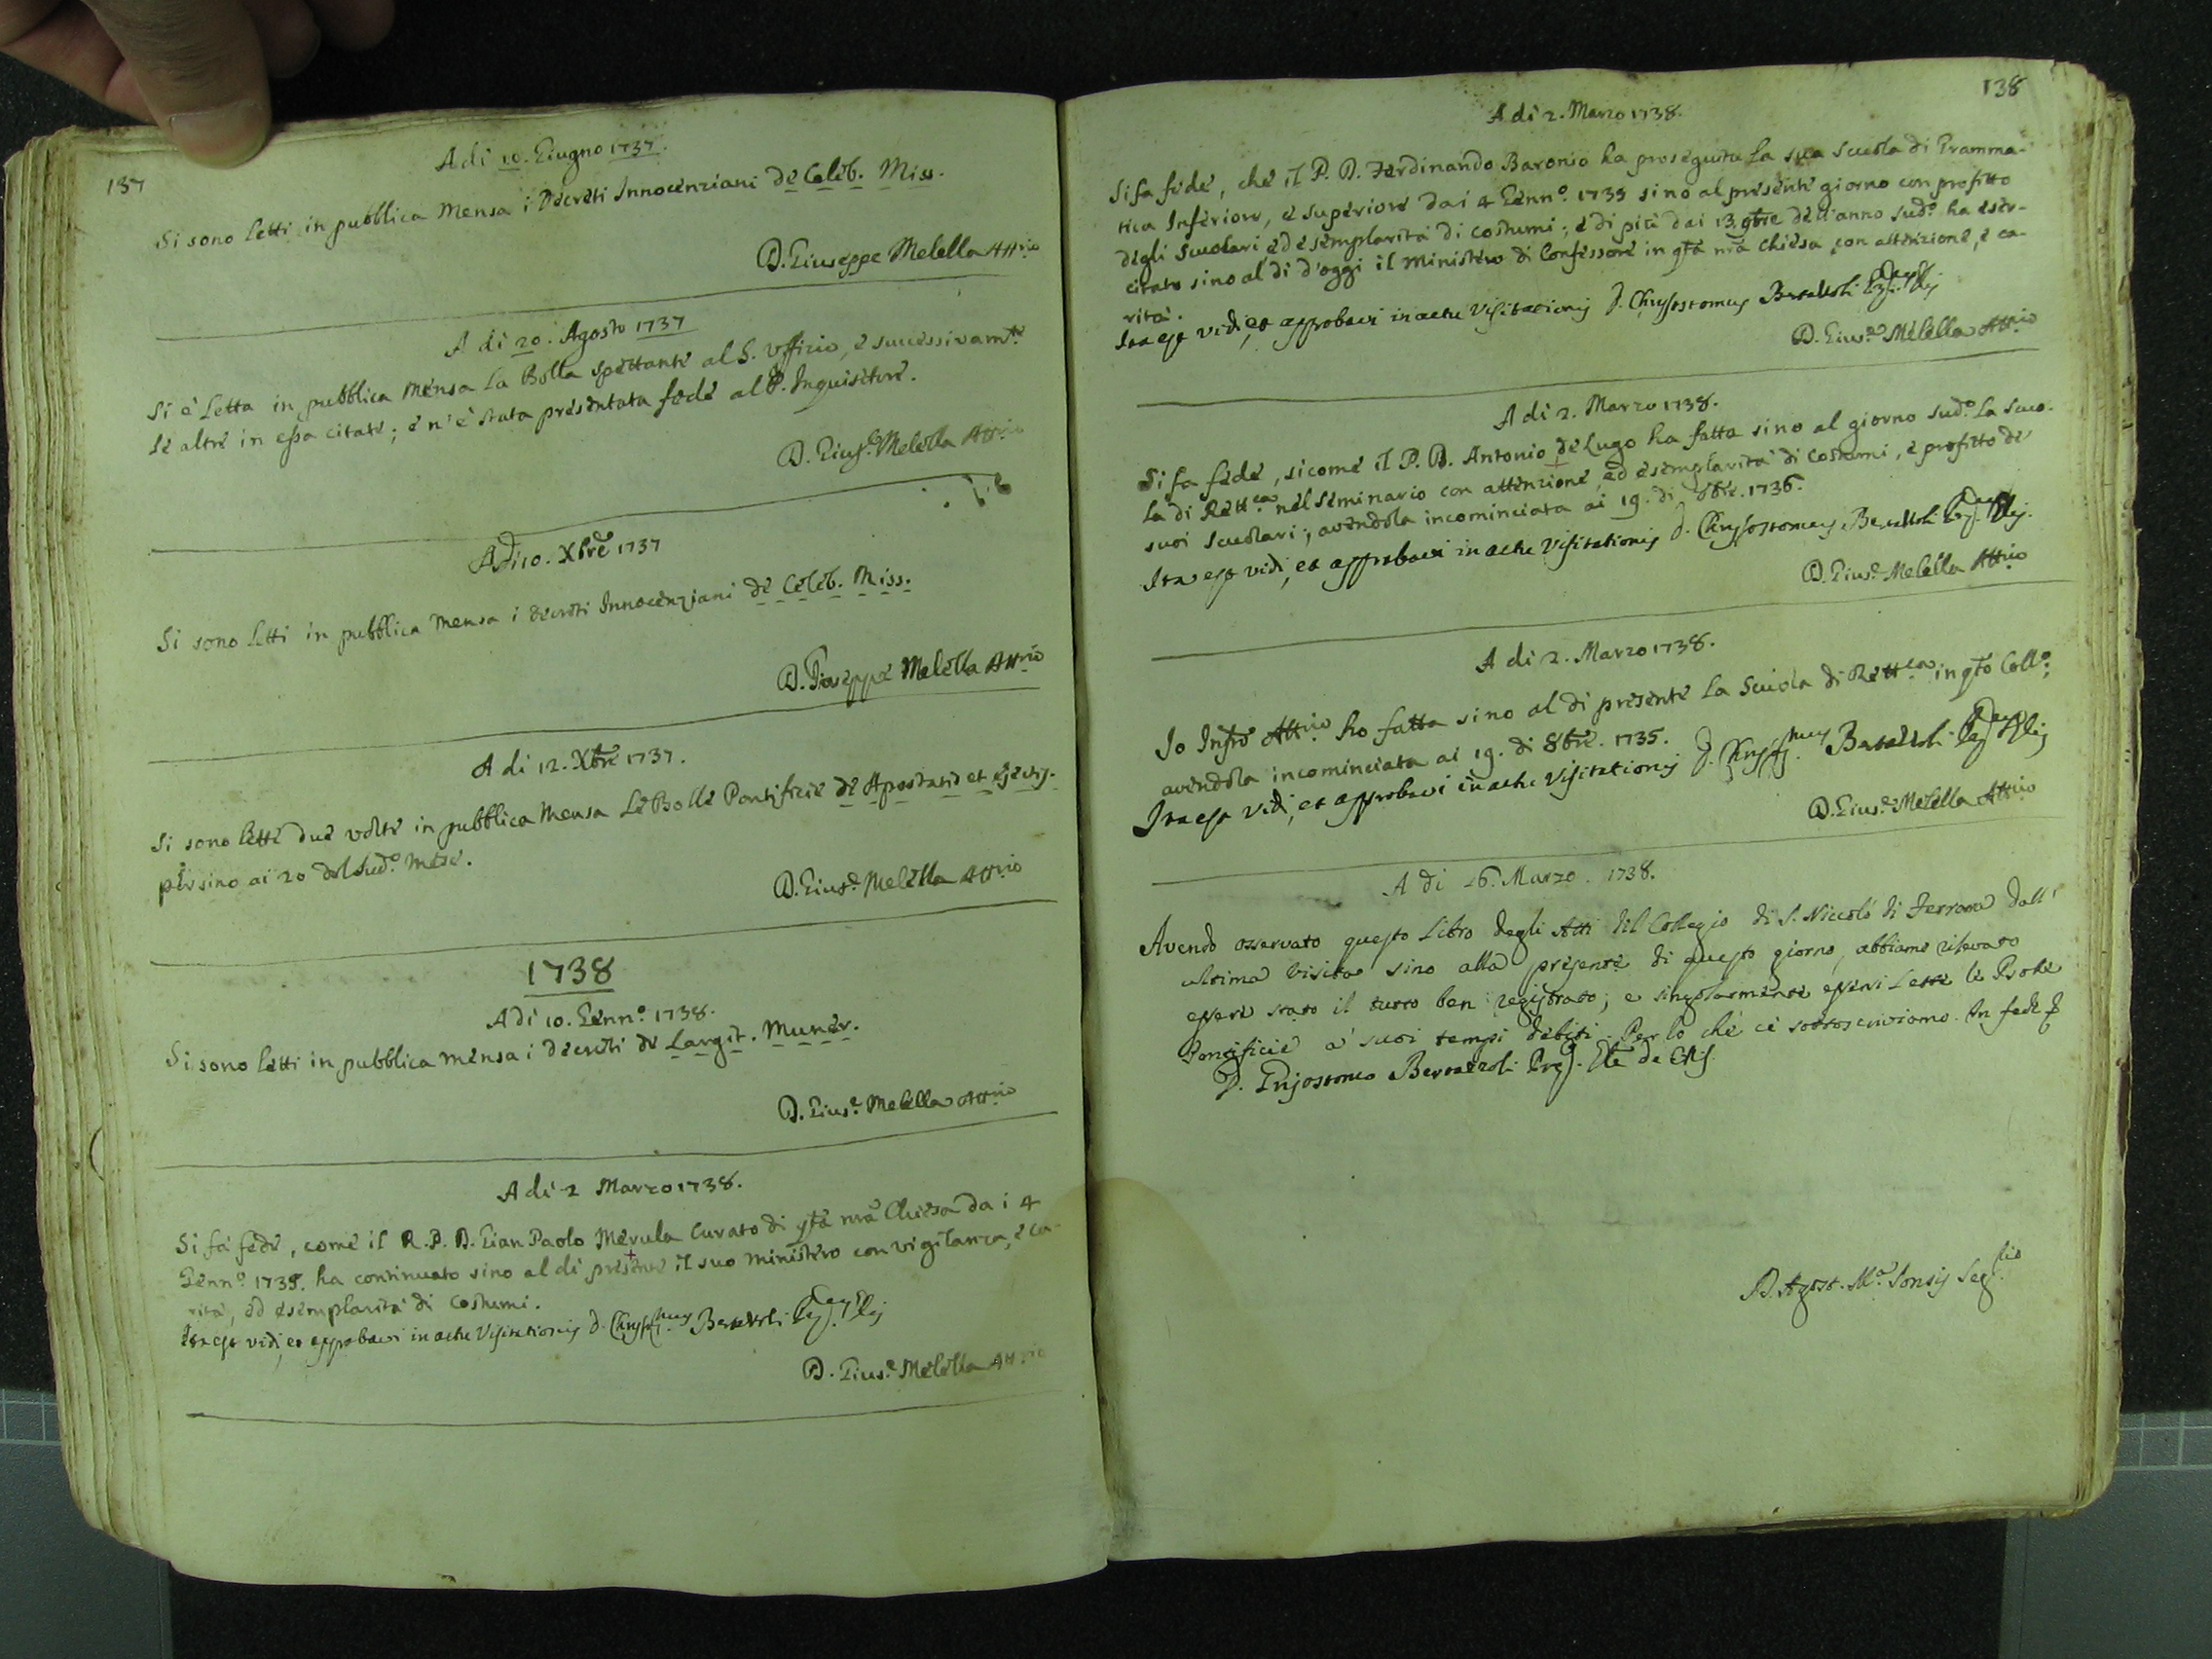 137
A di 10. Giugno 1737.
Si sono letti in pubblica Mensa i Decreti Innocenziani de Celeb. Miss.
D. Giuseppe Melella Att.rio
A di 20. Agosto 1737
Si è letta in pubblica Mensa la Bolla spettante al S. Uffizio, e successivam.te
le altre in essa citate; e n'è stata presentata fede al P. Inquisitore.
D. Gius.e Melella Att.rio
A di 10. Xbre 1737
Si sono letti in pubblica Mensa i decreti Innocenziani de Celeb. Miss.
D. Giuseppe Melella Att.rio
A di 12. Xbre 1737.
Si sono lette due volte in pubblica Mensa le Bolle Pontificie de Apostatis et ejectis.
persino ai 20 del sud.o mese.
D. Gius.e Melella Att.rio
1738
A di 10. Genn.o 1738.
Si sono letti in pubblica mensa i decreti de Largit. Muner.
D. Gius.e Melella Att.rio
A di 2 Marzo 1738.
Si fa fede, come il R. P. D. Gian Paolo Merula Curato di q.ta n̄ra Chiesa da i 4
Genn.o 1735. ha continuato sino al di presente il suo ministero con vigilanza, e ca-
rità, ed esemplarità di costumi.
Ita est vidi, et approbavi in actu Visitationis D. Chrysost.mus Bertazzoli
D. Gius.e Melella Att.rio
138
A di 2. Marzo 1738.
Si fa fede, che il P. D. Ferdinando Baronio ha proseguita la sua scuola di Gramma-
tica Inferiore, e superiore dai 4 Genn.o 1735 sino al presente giorno con profitto
degli Scuolari, ed esemplarità di costumi; e di più dai 13. 9bre dell'anno sud.o ha eser-
citato sino al di d'oggi il Ministero di Confessore in q.ta n̄ra Chiesa con attenzione, e ca-
rità.
Ita est vidi, et approbavi in actu Visitationis D. Chrysostomus Bertazzoli
D. Gius.e Melella Att.rio
A di 2. Marzo 1738.
Si fa fede, sicome il P. D. Antonio de Lugo ha fatta sino al giorno sud.o la scuo-
la di Rett.ca nel Seminario con attenzione, ed esemplarità di costumi, e profitto de
suoi Scuolari; avendola incominciata ai 19. di 8bre. 1736.
Ita est vidi, et approbavi in actu Visitationis D. Chrysostomus Bertazzoli
D. Gius.e Melella Att.rio
A di 2. Marzo 1738.
Io Infr̄o Att.rio ho fatta sino al di presente la Scuola di Rett.ca in q.to Coll.o;
avendola incominciata ai 19. di 8bre. 1735.
Ita est vidi, et approbavi in actu Visitationis D. Chrysost.mus Bertazzoli
D. Gius.e Melella Att.rio
A di 26. Marzo. 1738.
Avendo osservato questo Libro degli Atti del Collegio di S. Niccolò di Ferrara dall'
ultima Visita sino alla presente di questo giorno, abbiamo rilevato
essere stato il tutto ben registrato; e singolarmente essersi lette le Bolle
Pontificie a' suoi tempi debiti. Per lo che ci sottoscriviamo. In fede
D. Grisostomo Bertazzoli
D. Agost. M.a Sonsis Seg.rio